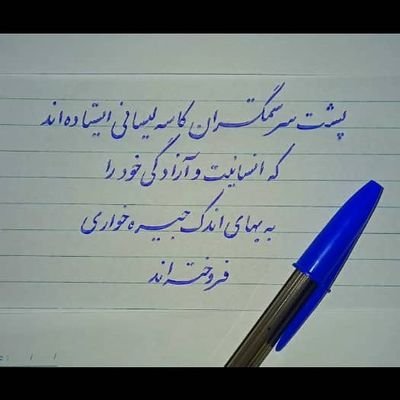 پشت سر ستمگران کاسه لیسانی ایستاده اند
که انسانیت و آزادگی خود را
به بهای اندک جیره خواری
فروخته اند